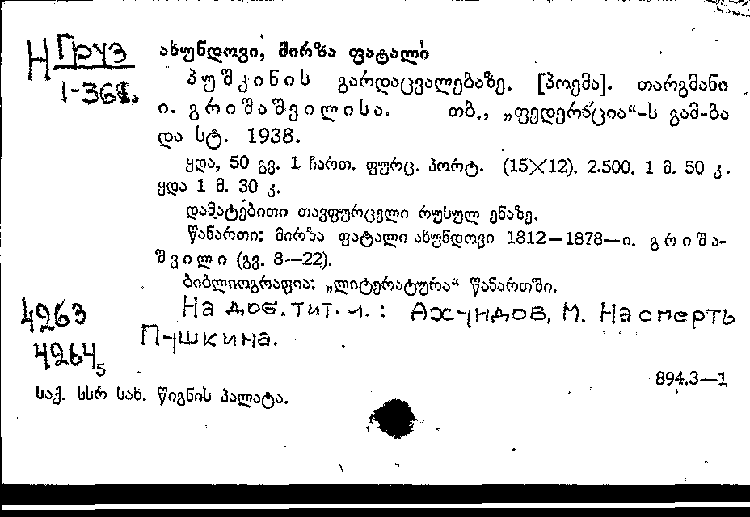 Н Груз
1-368.
ახუნდოვი, მირზა ფატალი
პუშკინის გარდაცვალებაზე. [პოემა]. თარგმანი
ი. გრიშაშვილისა. თბ., „ფედერაცია“-ს გამ-ბა
და სტ. 1938.
ყდა, 50 გვ. 1 ჩართ. ფურც. პორტ. (15×12). 2.500. 1 მ. 50 კ.
ყდა 1 მ. 30 კ.
დამატებითი თავფურცელი რუსულ ენაზე.
წანართი: მირზა ფატალი ახუნდოვი 1812—1878—ი. გრიშა-
შვილი (გვ. 8—22).
ბიბლიოგრაფია: „ლიტერატურა“ წანართში.
На доб. тит. л.: Ахундов, М. На смерть
Пушкина.
4263
4264
5
894.3—1
საქ. სსრ სახ. წიგნის პალატა.